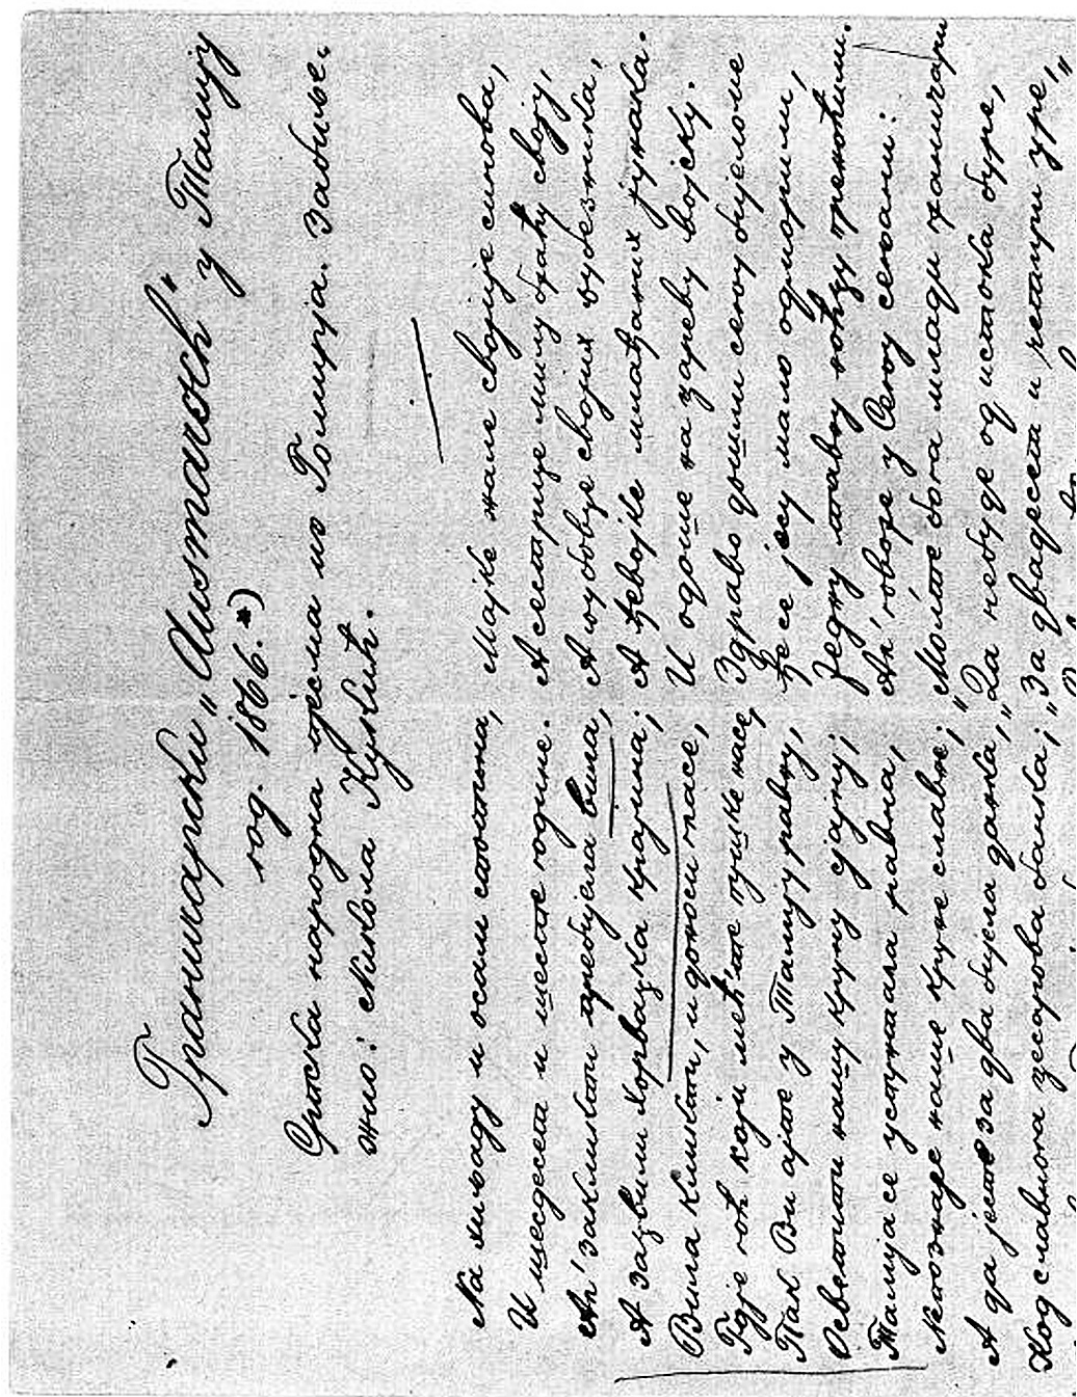 Граничарски у Талију
год. 1866.*)
Српска народна пјесма из Гомирја. Забиље-
жио: Никола Кукић.
На хиљаду и осам стотина,
И шесдесет и шесте године.
Ал' закликти пребијела вила,
А зацвили Хорвацка крајина;
Вила кликти, и доноси гласе,
Гдје гоћ који мећ'те пушке насе,
Пак Ви ајте у Талију равну,
Осветлити нашу круну сјајну;
Талија се равна,
Непознаје наше круне славне;
А да јесте за два бијела данка,
Код славнога цесарова банка;
Мајке жале својије синова,
А сестрице милу браћу своју,
А љубовце својих
А ђевојке млађаних јунака.
И одоше на цареву војску.
Здраво дошли селу бијеломе
Ђе се јесу мало одморили,
Једну тавну ноћцу преноћили.
Ал' говоре у Селу сељани:
„Молте бога млади граничари
„Да небуде од истока буре,
„За двадеста и четири уре,"